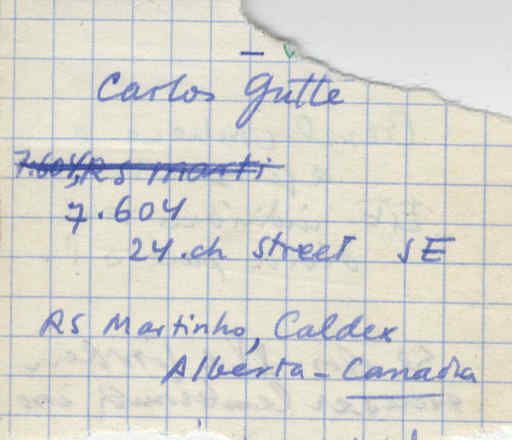 Carlos Gutte
7.604, RS marti
7.604
24.ch street SE
RS Martinho, Caldex
Alberta - Canada